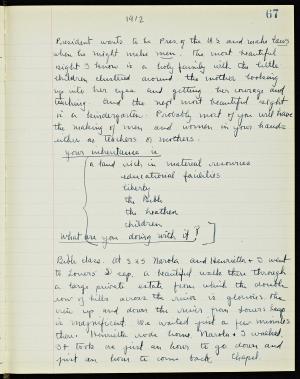 1912
67
President wants to be Pres. of the U.S. and make laws
when he might make men. The most beautiful
sight I know is a holy family with the little
children clustered around the mother looking
up into her eyes and getting her courage and
teaching. And the next most beautiful sight
is a kindergarten. Probably most of you will have
the making of men and women in your hands
either as teachers or mothers.
Your inheritance is
a land rich in material resources
educational facilities
liberty
the Bible
the heathen
children
What are you doing with it?
Bible class. At 3:25 Narola and Henrietta & I went
to Lovers' Leap, a beautiful walk there through
a large private estate from which the double
row of hills across the river is glorious. The
view up and down the river from Lovers Leap
is magnificent. We waited just a few minutes
there. Henrietta rode home. Narola & I walked
It took us just an hour to go down and
just an hour to come back. Chapel.